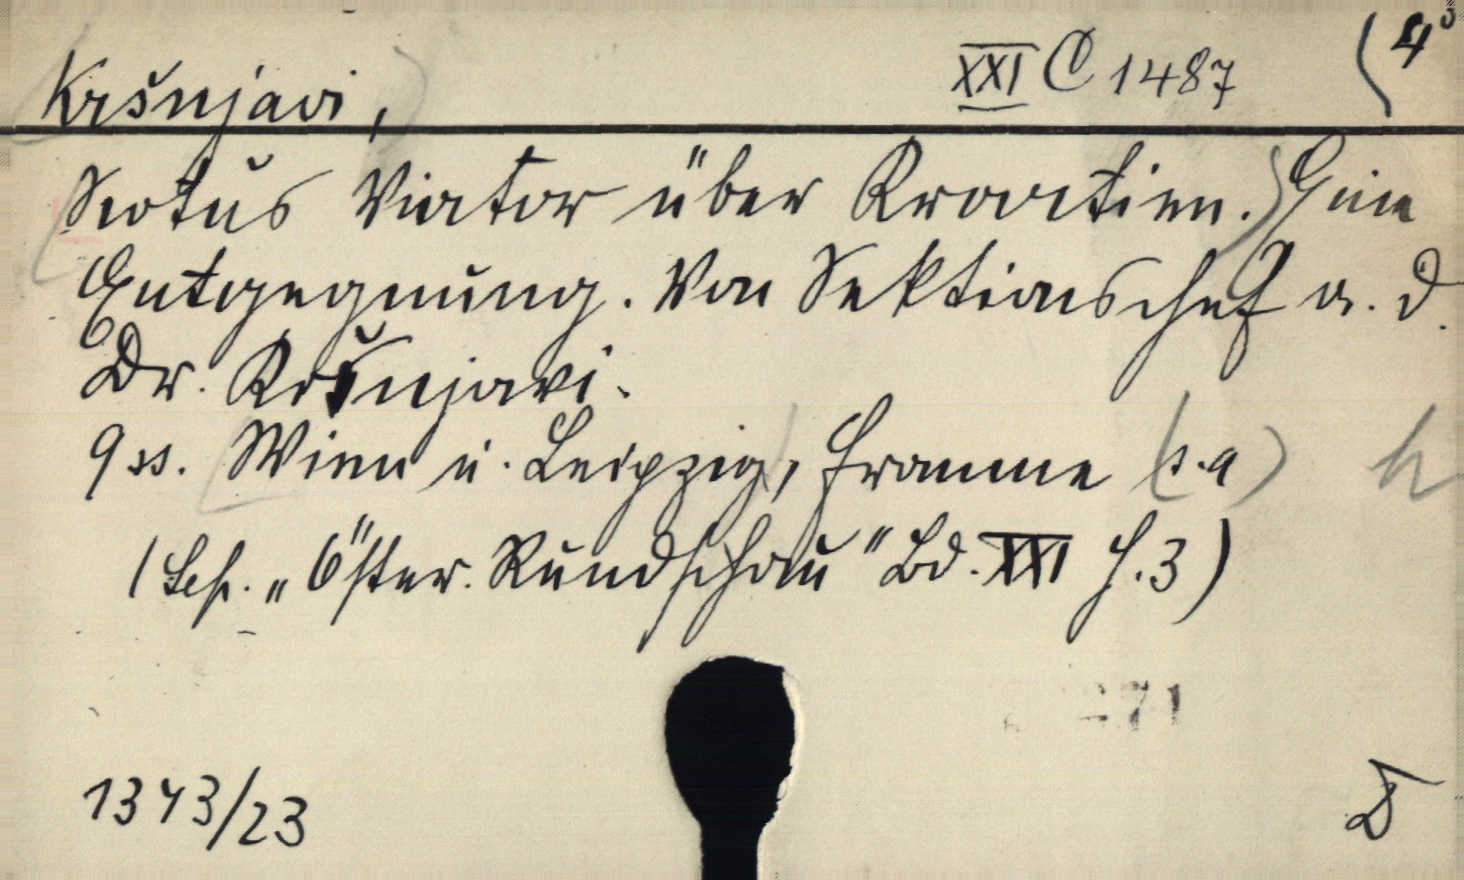 Kršnjavi, XXI C 1487 (4°
Scotus Viator über Kroatien. Eine
Entgegnung. Von Sektionschef a. d.
Dr. Kršnjavi.
9 ss. Wien u. Leipzig, Fromme (s. a) h
(Sep. „Öster. Rundschau" Bd. XXI H. 3)
271
1343/23